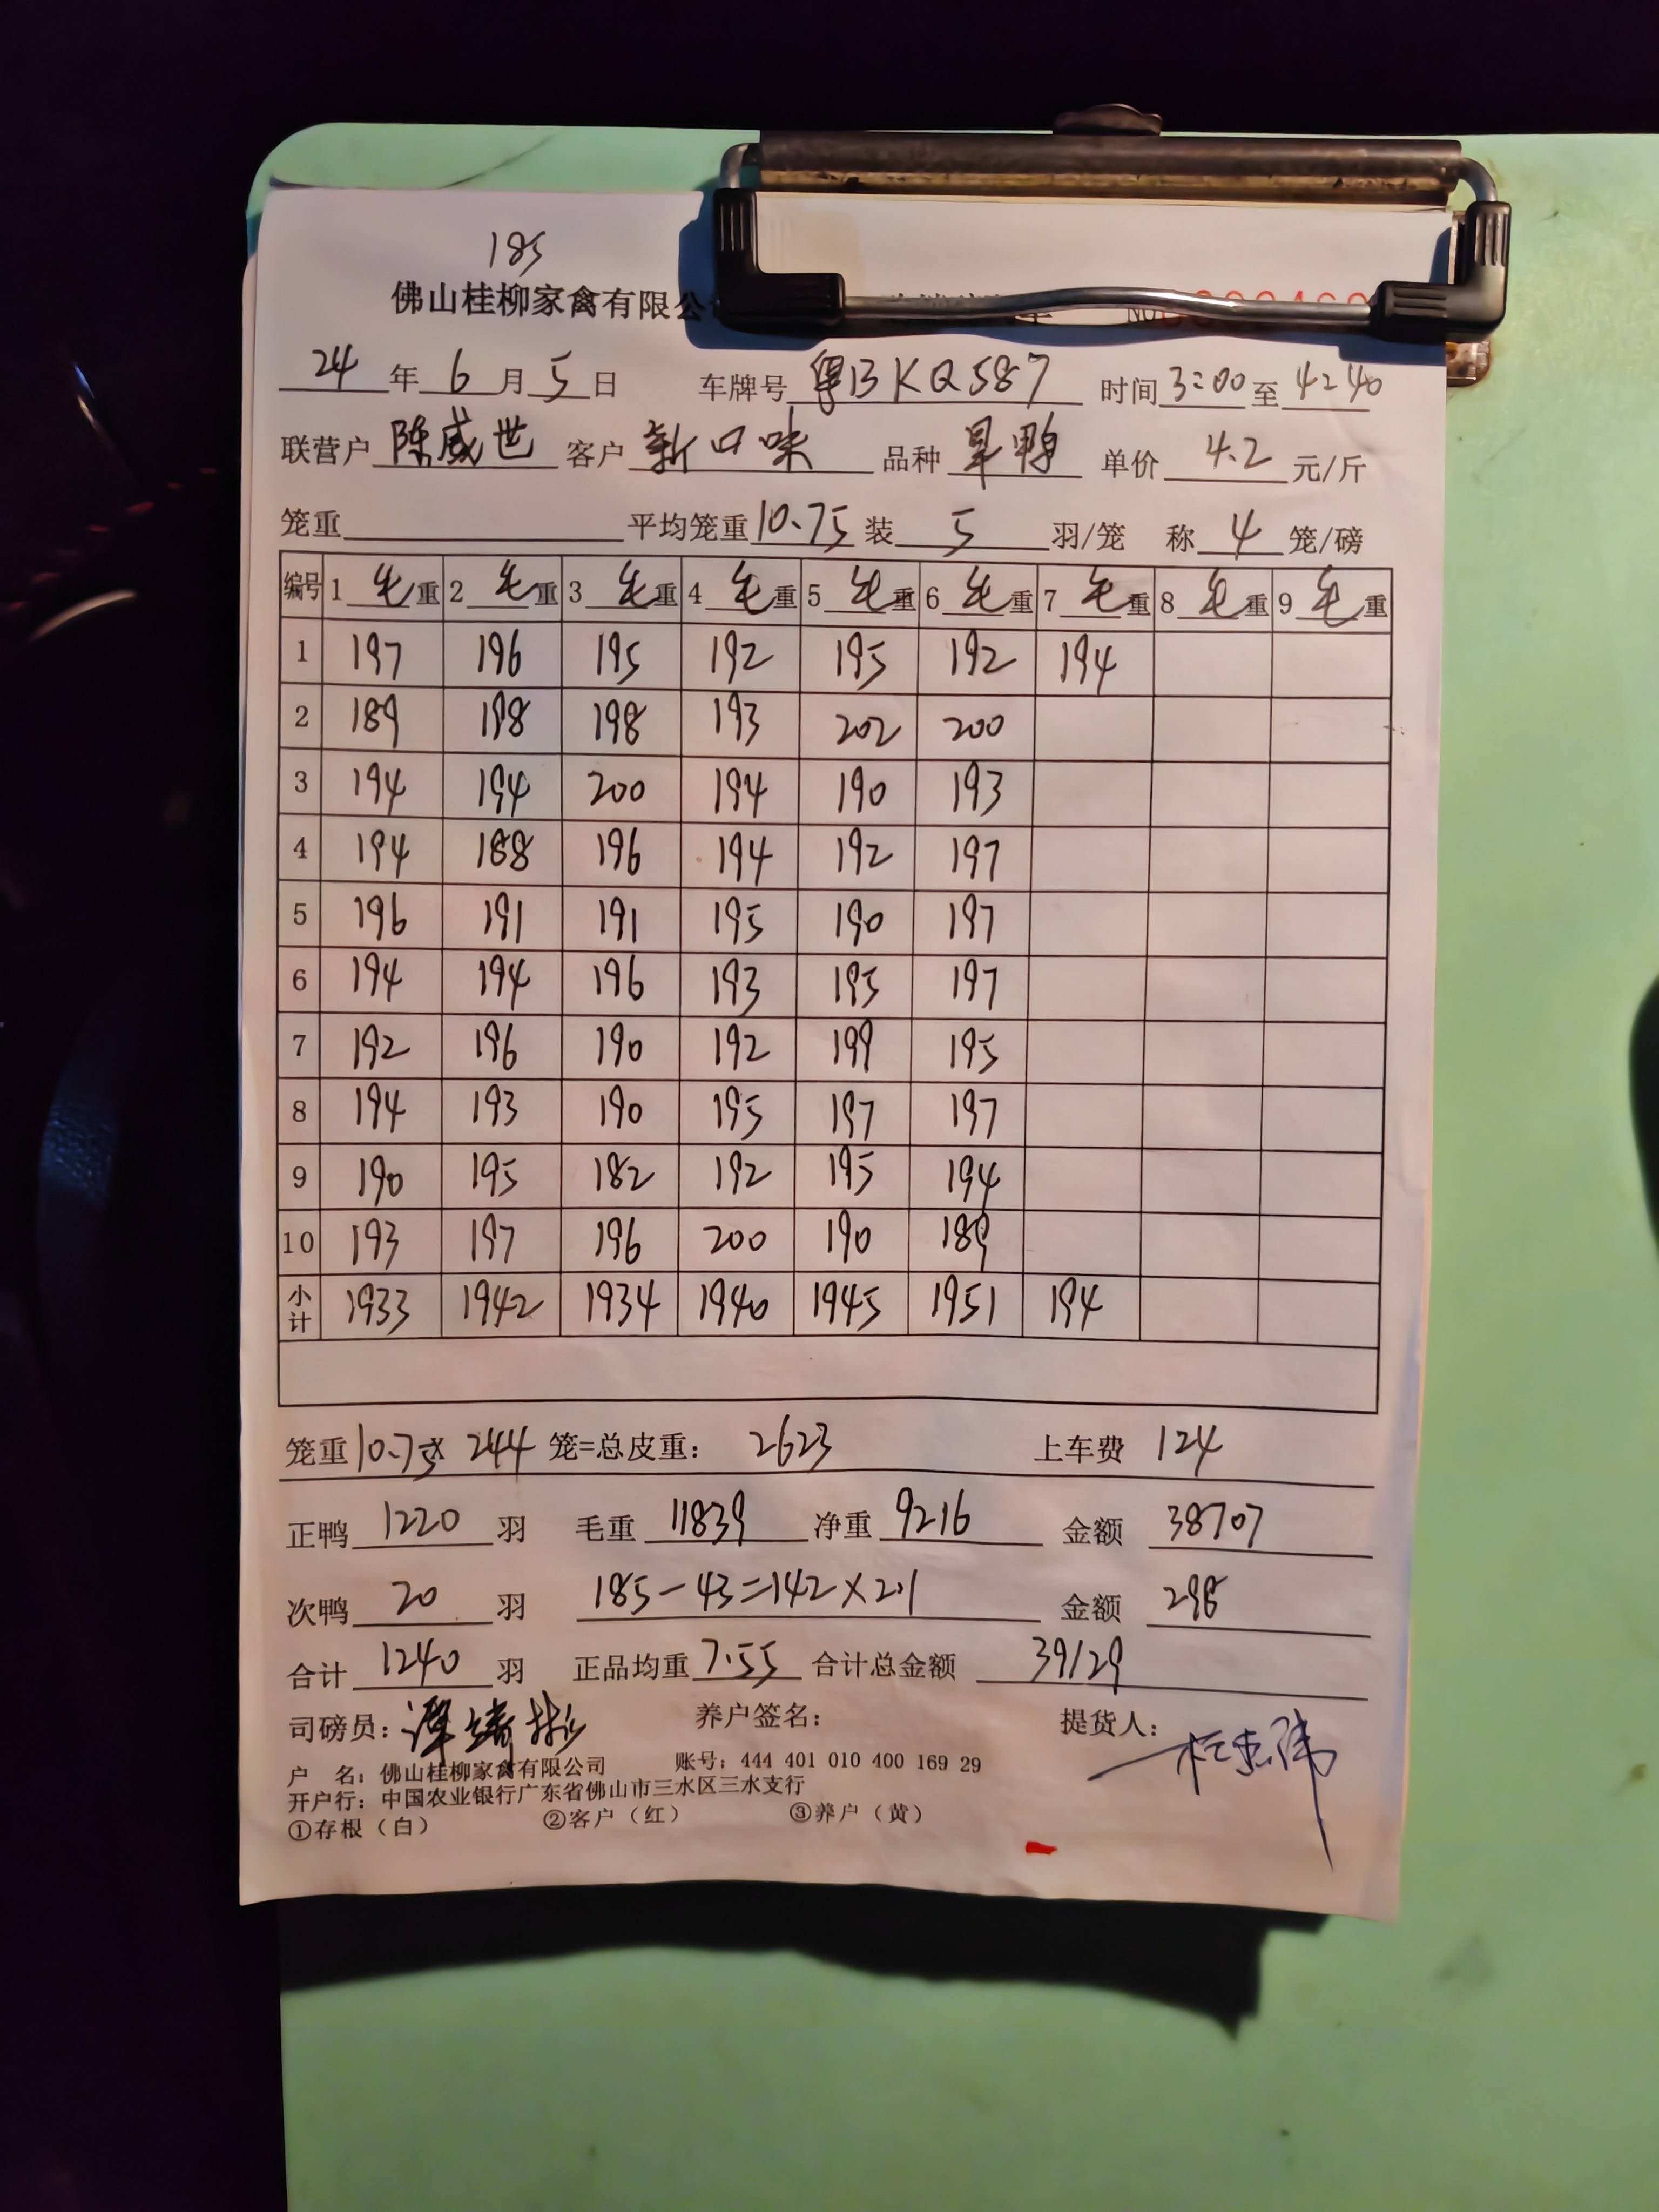 185
佛山桂柳家禽有限公 No
24 年 6 月 5 日 车牌号 粤BKQ587 时间 3:00 至 4:40
联营户 陈威世 客户 新口味 品种 旱鸭 单价 4.2 元/斤
笼重 平均笼重 10.75 装 5 羽/笼 称 4 笼/磅
编号 1 毛重 2 毛重 3 毛重 4 毛重 5 毛重 6 毛重 7 毛重 8 毛重 9 毛重
1 197 196 195 192 195 192 194
2 189 198 198 193 202 200
3 194 194 200 194 190 193
4 194 188 196 194 192 197
5 196 191 191 195 190 197
6 194 194 196 193 195 197
7 192 196 190 192 199 195
8 194 193 190 195 197 197
9 190 195 182 192 195 194
10 193 197 196 200 190 189
小计 1933 1942 1934 1940 1945 1951 194
笼重 10.75x 244 笼=总皮重： 2623 上车费 124
正鸭 1220 羽 毛重 11839 净重 9216 金额 38707
次鸭 20 羽 185-43=142×2.1 金额 298
合计 1240 羽 正品均重 7.55 合计总金额 39129
司磅员： 养户签名： 提货人：
户 名：佛山桂柳家禽有限公司 账号：444 401 010 400 169 29
开户行：中国农业银行广东省佛山市三水区三水支行
①存根（白） ②客户（红） ③养户（黄）